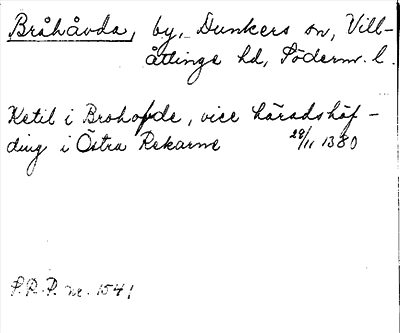 Bråhåvda, by, Dunkers sn, Vill-
åttinge hd, Söderm. l.
Ketil i Brohofde, vice häradshöf-
ding i Östra Rekarne 28/11 1380
S.R.P. nr. 1541